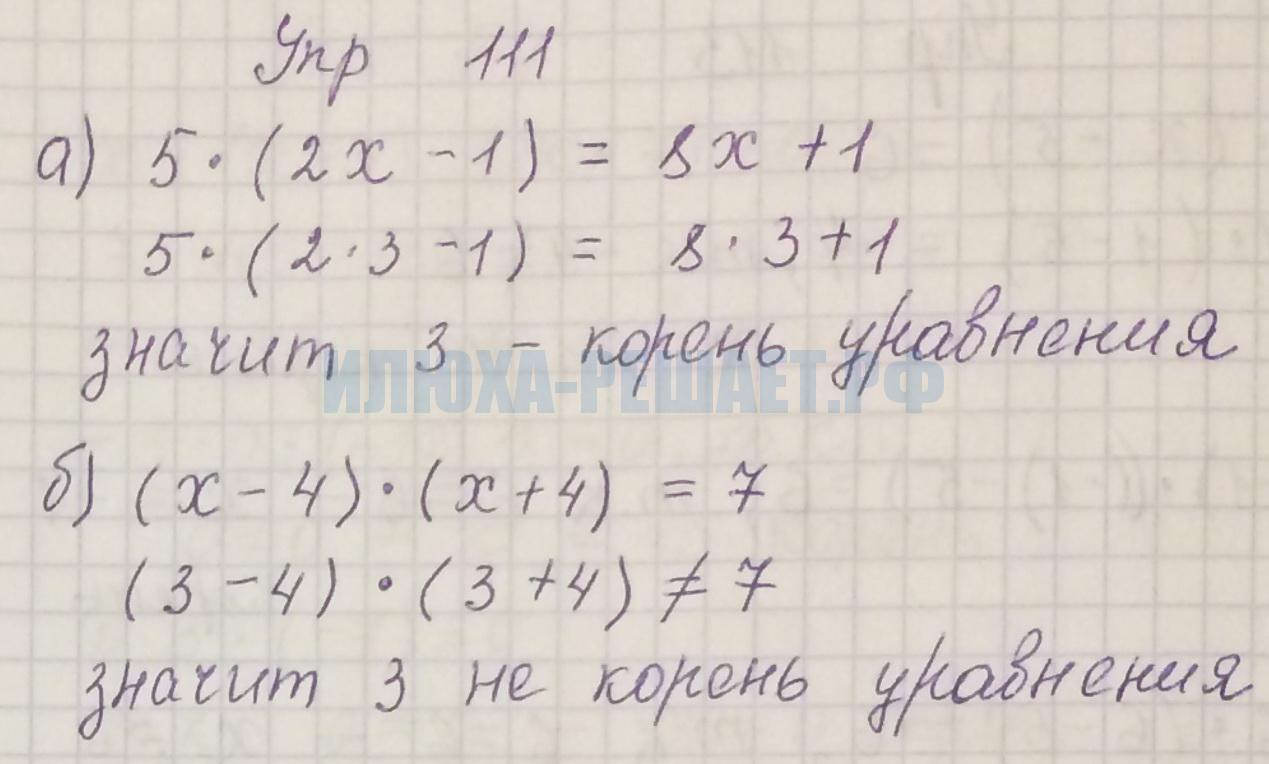 Упр 111
а) 5·(2x - 1) = 8x + 1
5·(2·3 - 1) = 8·3 + 1
значит 3 - корень уравнения
ИЛЮХА-РЕШАЕТ.РФ
б) (x - 4)·(x + 4) = 7
(3 - 4)·(3 + 4) ≠ 7
значит 3 не корень уравнения